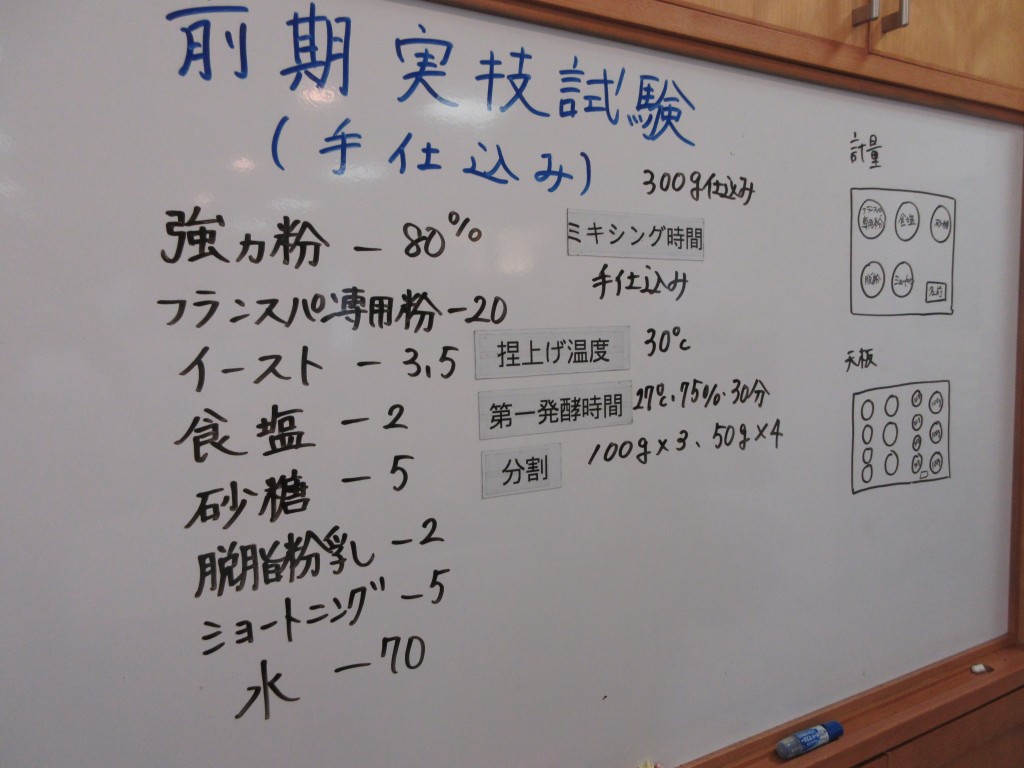 前期実技試験
(手仕込み)
300g仕込み
強力粉 － 80%
フランスパン専用粉 － 20
イースト － 3.5
食塩 － 2
砂糖 － 5
脱脂粉乳 － 2
ショートニング － 5
水 － 70
ミキシング時間
手仕込み
捏上げ温度 30℃
第一発酵時間 27℃・75%・30分
分割 100g×3、50g×4
計量
天板